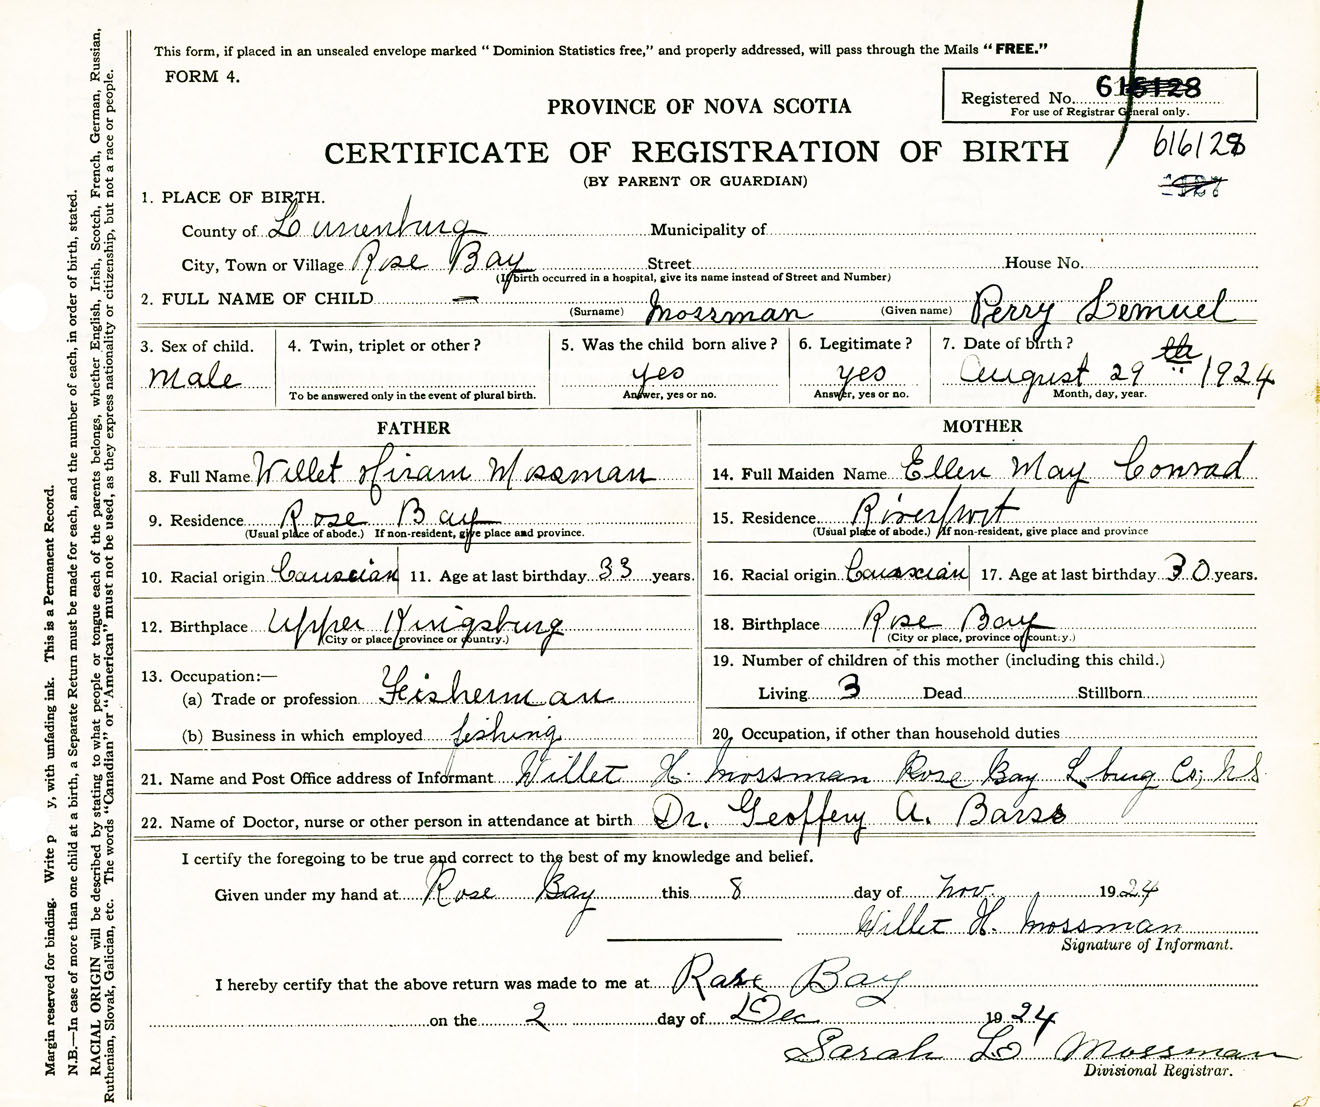 This form, if placed in an unsealed envelope marked "Dominion Statistics free," and properly addressed, will pass through the Mails "FREE."
FORM 4.
Registered No. 616128
For use of Registrar General only.
PROVINCE OF NOVA SCOTIA
616128
CERTIFICATE OF REGISTRATION OF BIRTH
(BY PARENT OR GUARDIAN)
1. PLACE OF BIRTH.
County of Lunenburg Municipality of
City, Town or Village Rose Bay Street House No.
(If birth occurred in a hospital, give its name instead of Street and Number)
2. FULL NAME OF CHILD — (Surname) Mossman (Given name) Perry Lemuel
3. Sex of child. 4. Twin, triplet or other? 5. Was the child born alive? 6. Legitimate? 7. Date of birth?
Male yes yes August 29th 1924
To be answered only in the event of plural birth. Answer, yes or no. Answer, yes or no. Month, day, year.
FATHER MOTHER
8. Full Name Willet Hiram Mossman 14. Full Maiden Name Ellen May Conrad
9. Residence Rose Bay 15. Residence Riverport
(Usual place of abode.) If non-resident, give place and province. (Usual place of abode.) If non-resident, give place and province
10. Racial origin 11. Age at last birthday 33 years. 16. Racial origin 17. Age at last birthday 30 years.
12. Birthplace Upper Kingsburg 18. Birthplace Rose Bay
(City or place, province or country.) (City or place, province or country.)
13. Occupation:— 19. Number of children of this mother (including this child.)
(a) Trade or profession Feisherman Living 3 Dead Stillborn
(b) Business in which employed fishing 20. Occupation, if other than household duties
21. Name and Post Office address of Informant Willet H. Mossman Rose Bay Lburg Co; N S
22. Name of Doctor, nurse or other person in attendance at birth Dr. Geoffery A. Barss
I certify the foregoing to be true and correct to the best of my knowledge and belief.
Given under my hand at Rose Bay this 8 day of Nov. 1924
Willet H. Mossman
Signature of Informant.
I hereby certify that the above return was made to me at Rose Bay
on the 2 day of Dec 1924
Sarah L. Mossman
Divisional Registrar.
Margin reserved for binding. Write p y, with unfading ink. This is a Permanent Record.
N.B.—In case of more than one child at a birth, a Separate Return must be made for each, and the number of each, in order of birth, stated.
RACIAL ORIGIN will be described by stating to what people or tongue each of the parents belongs, whether English, Irish, Scotch, French, German, Russian,
Ruthenian, Slovak, Galician, etc. The words "Canadian" or "American" must not be used, as they express nationality or citizenship, but not a race or people.